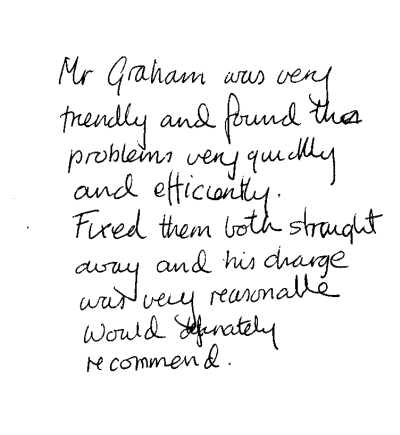 Mr Graham was very
friendly and found the
problems very quickly
and efficiently.
Fixed them both straight
away and his charge
was very reasonable
Would definately
recommend.